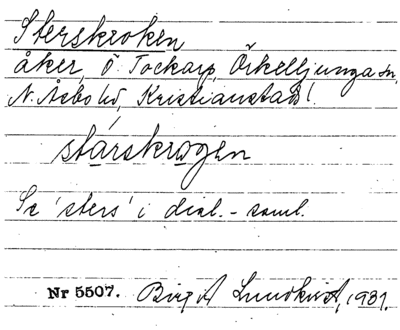 Sterskroken
åker, Ö. Tockarp, Örkelljunga sn,
N. Åsbo hd, Kristianstads l.
stárskrogen
Se 'sters' i dial.-saml.
Nr 5507. Birgit Lundkvist, 1931.